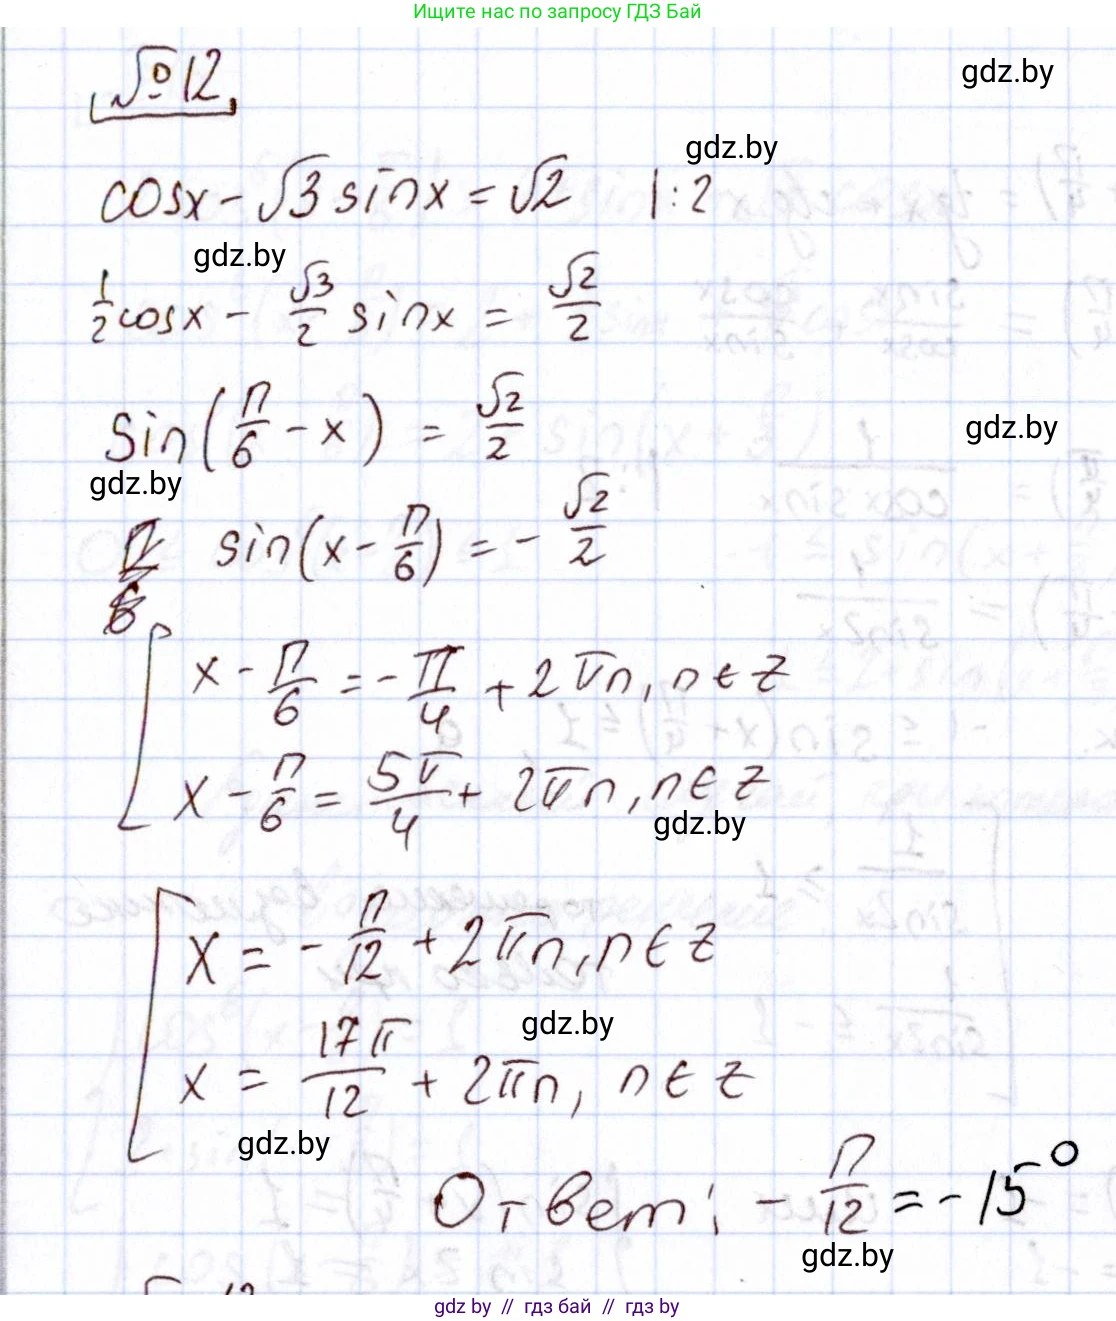 Ищите нас по запросу ГДЗ Бай
№12
gdz.by
gdz.by
cosx - √3 sinx = √2 |:2
gdz.by
1/2 cosx - √3/2 sinx = √2/2
sin(π/6 - x) = √2/2
gdz.by
gdz.by
sin(x - π/6) = - √2/2
[ x - π/6 = - π/4 + 2πn, n ∈ Z
x - π/6 = 5π/4 + 2πn, n ∈ Z
gdz.by
[ x = - π/12 + 2πn, n ∈ Z
gdz.by
x = 17π/12 + 2πn, n ∈ Z
gdz.by
Ответ: - π/12 = -15°
gdz.by
gdz.by // гдз бай // гдз by